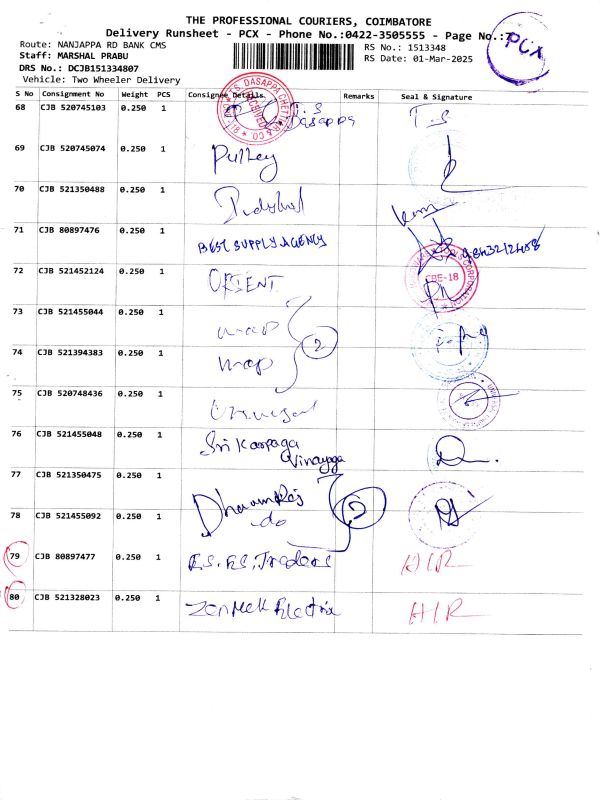 THE PROFESSIONAL COURIERS, COIMBATORE
Delivery Runsheet - PCX - Phone No.:0422-3505555 - Page No.:7
PCX
Route: NANJAPPA RD BANK CMS
RS No.: 1513348
Staff: MARSHAL PRABU
RS Date: 01-Mar-2025
DRS No.: DCJB151334807
Vehicle: Two Wheeler Delivery
S No Consignment No Weight PCS Consignee Details Remarks Seal & Signature
68 CJB 520745103 0.250 1 T.S Dasappa T.S
69 CJB 520745074 0.250 1 Pulley
70 CJB 521350488 0.250 1
71 CJB 80897476 0.250 1 BEST SUPPLY AGENCY
72 CJB 521452124 0.250 1 ORIENT CBE-18
73 CJB 521455044 0.250 1 map
74 CJB 521394383 0.250 1 map 2
75 CJB 520748436 0.250 1 Universal
76 CJB 521455048 0.250 1 Sri Karpaga Vinayaga
77 CJB 521350475 0.250 1 Dharamraj
78 CJB 521455092 0.250 1 -do 2
79 CJB 80897477 0.250 1 R.S. RS, Traders HIR
80 CJB 521328023 0.250 1 Electrix HIR